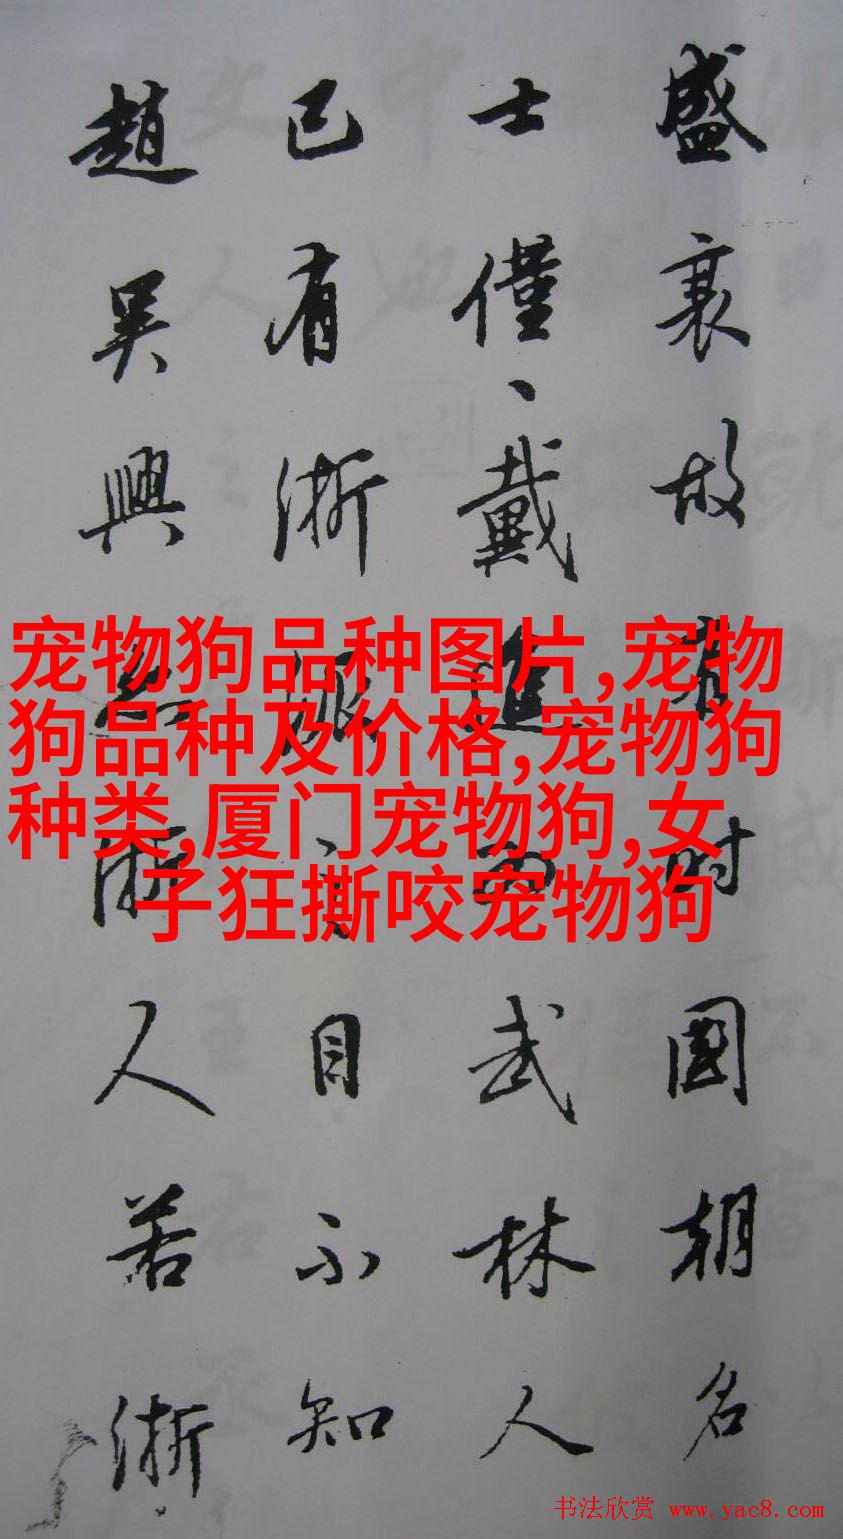 盛衰故有时國朝名
士僅、戴進武林人
已有浙派之目不知
趙吳興亦浙人若浙
宠物狗品种图片,宠物
狗品种及价格,宠物狗
种类,厦门宠物狗,女
子狂撕咬宠物狗
书法欣赏 www.yac8.com